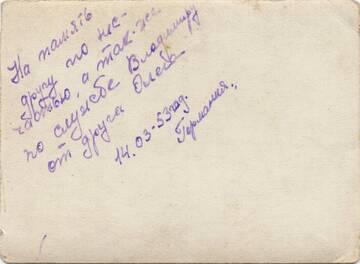 На память
другу по нес-
частью, а так-же
по службе Владимиру
от друга Олега
14.03-53 год.
Германия.